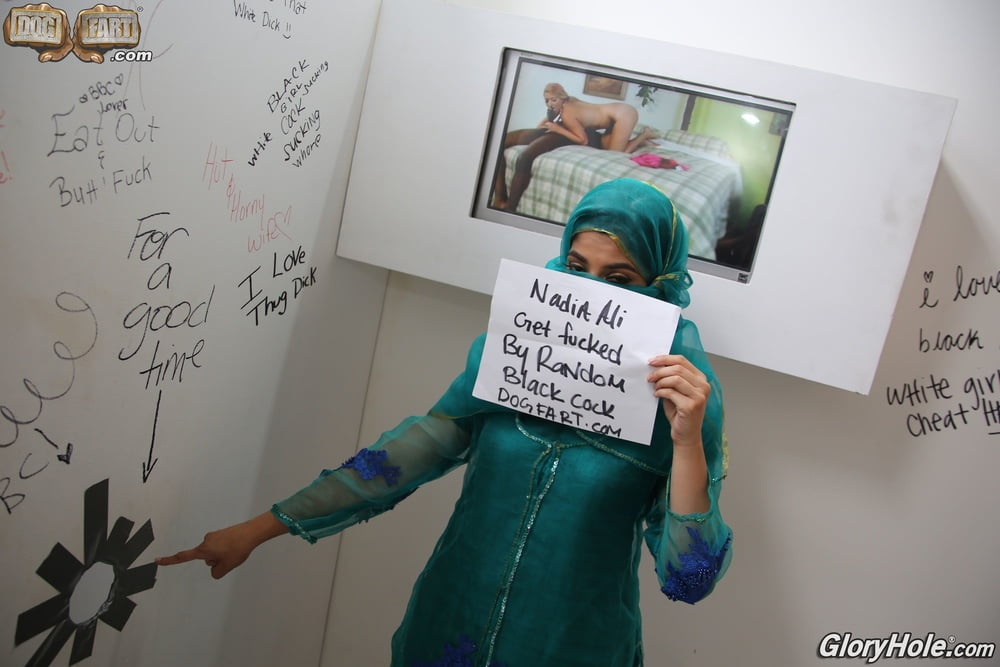 DOG FART
.com
That
White Dick !!
BBC
Lover
Eat Out
&
Butt Fuck
BLACK
GIRL
Cock sucking
White
SUCKING
whore
Hot
&
Horny
Wife
For
a
good
time
I Love
Thug Dick
BC
Nadia Ali
Get fucked
By Random
Black Cock
DOGFART.COM
i love
black
white girl
cheat
GloryHole.com